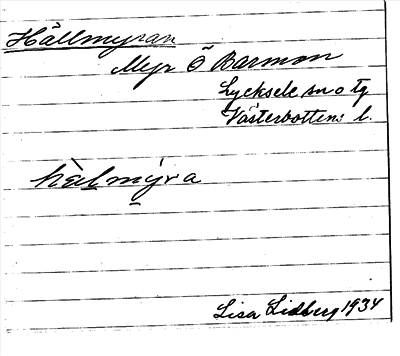 Hällmyran
Myr Ö Barmon
Lycksele sn o tg
Västerbottens l.
hàlmýra
Lisa Lidberg 1934